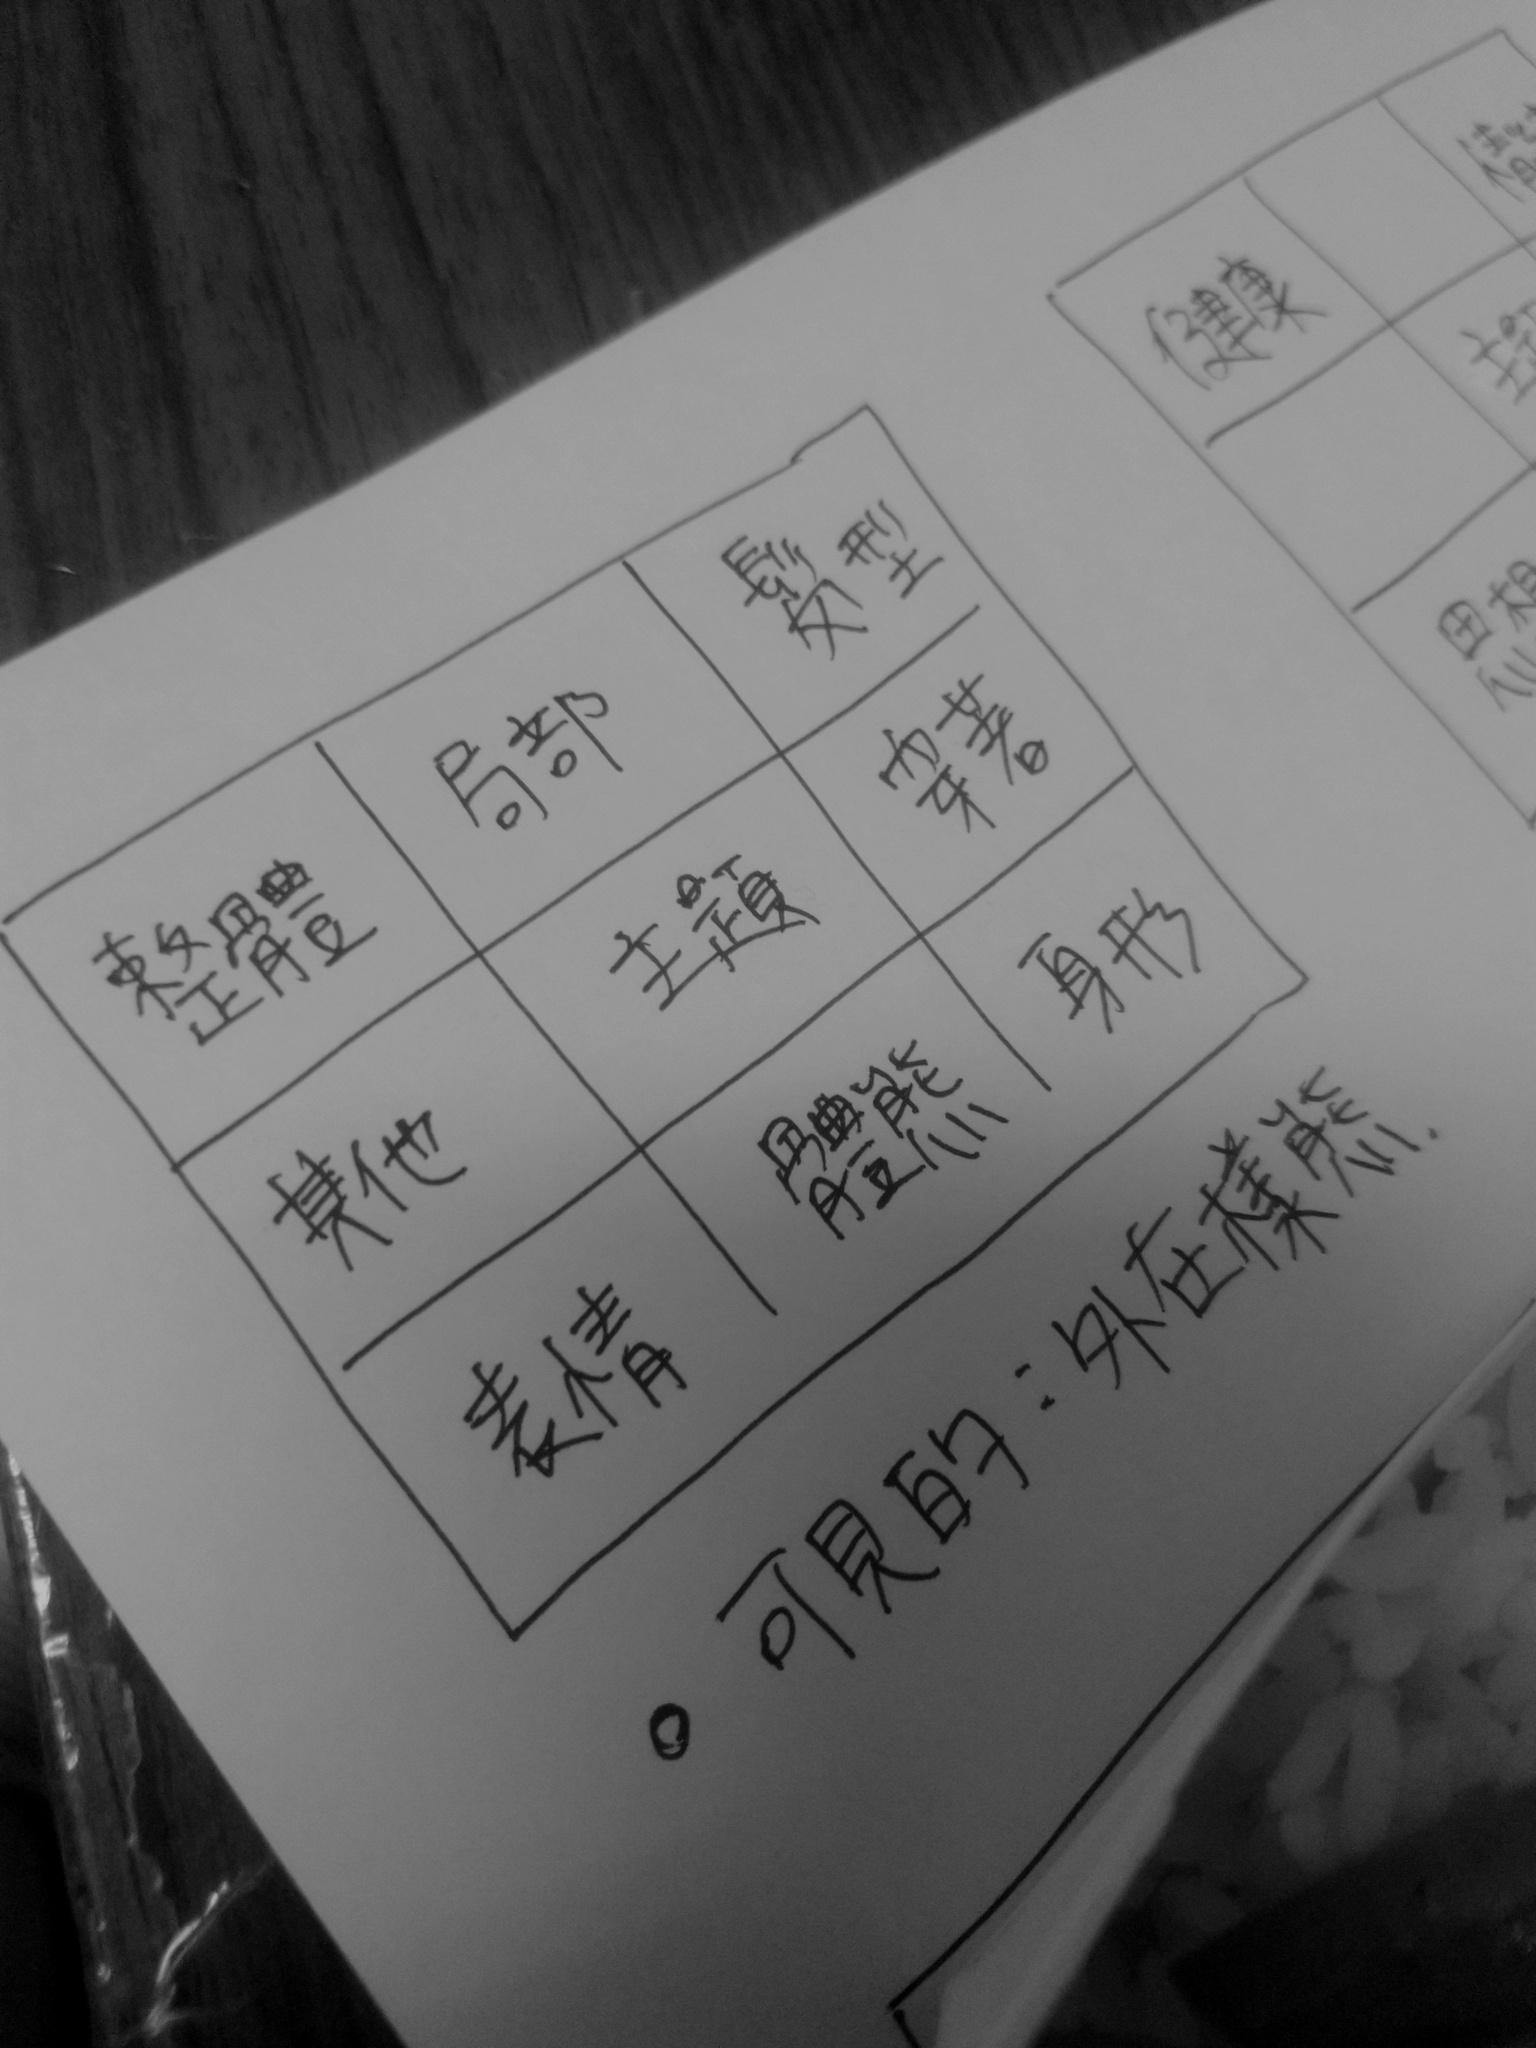 整體 局部 髮型
其他 主題 穿著
表情 體態 身形
可見的：外在樣態.
健康
主題
思想